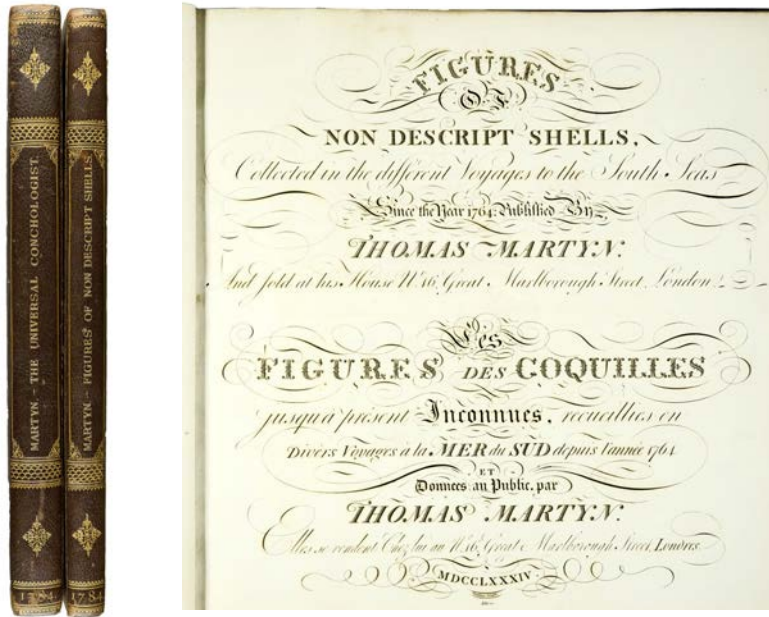 MARTYN. - THE UNIVERSAL CONCHOLOGIST.
1784.
MARTYN. - FIGURES OF NON DESCRIPT SHELLS
1784.
FIGURES
OF
NON DESCRIPT SHELLS,
Collected in the different Voyages to the South Seas
Since the Year 1764: Published By
THOMAS MARTYN.
And sold at his House No. 16, Great Marlborough Street, London.
Les
FIGURES DES COQUILLES
jusqu'à présent Inconnues, recueillies en
Divers Voyages à la MER du SUD depuis l'année 1764
ET
Donnees au Public, par
THOMAS MARTYN.
Elles se vendent Chez lui au No. 16, Great Marlborough Street, Londres.
MDCCLXXXIV.